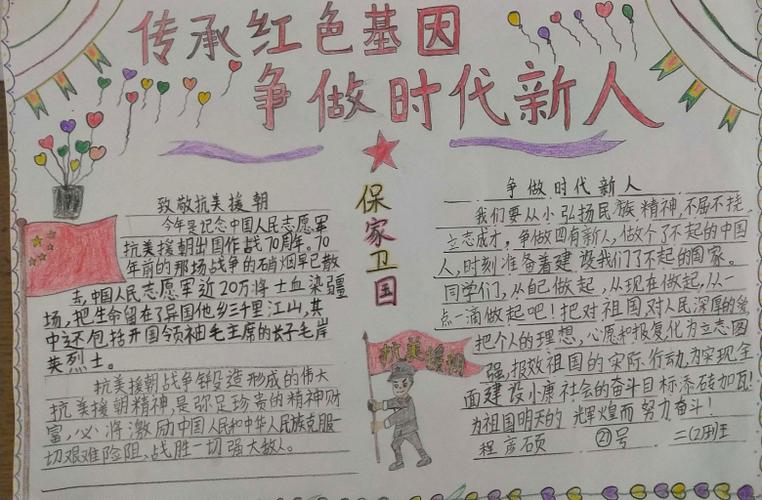 传承红色基因
争做时代新人
致敬抗美援朝
今年是记念中国人民志愿军
抗美援朝出国作战70周年。70
年前的那场战争的硝烟早已散
去,中国人民志愿军近20万将士血染疆
场,把生命留在了异国他乡三千里江山,其
中还包括开国领袖毛主席的长子毛岸
英烈士。
抗美援朝战争锻造形成的伟大
抗美援朝精神,是弥足珍贵的精神财
富,必将激励中国人民和中华人民族克服一
切艰难险阻、战胜一切强大敌人。
保家卫国
抗美援朝
争做时代新人
我们要从小弘扬民族精神,不屈不挠,
立志成才,争做四有新人,做个了不起的中国
人,时刻准备着建设我们了不起的国家。
同学们,从自己做起,从现在做起,从一
点一滴做起吧!把对祖国对人民深厚的
把个人的理想,心愿和报复化为立志图
强,报效祖国的实际行动,为实现全
面建设小康社会的奋斗目标添砖加瓦!
为祖国明天的辉煌而努力奋斗!
程彦硕 21号 二(2)班